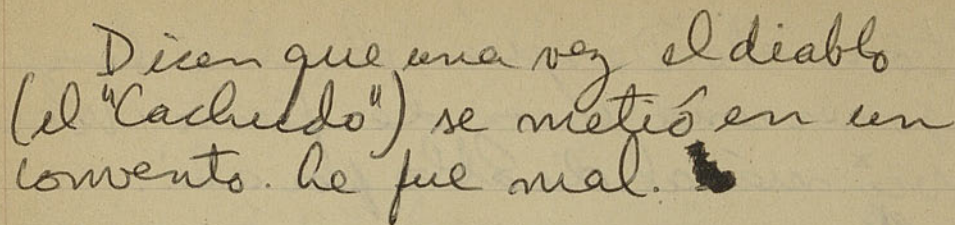 Dicen que una vez el diablo
(el "Cachudo") se metió en un
convento. Le fue mal.